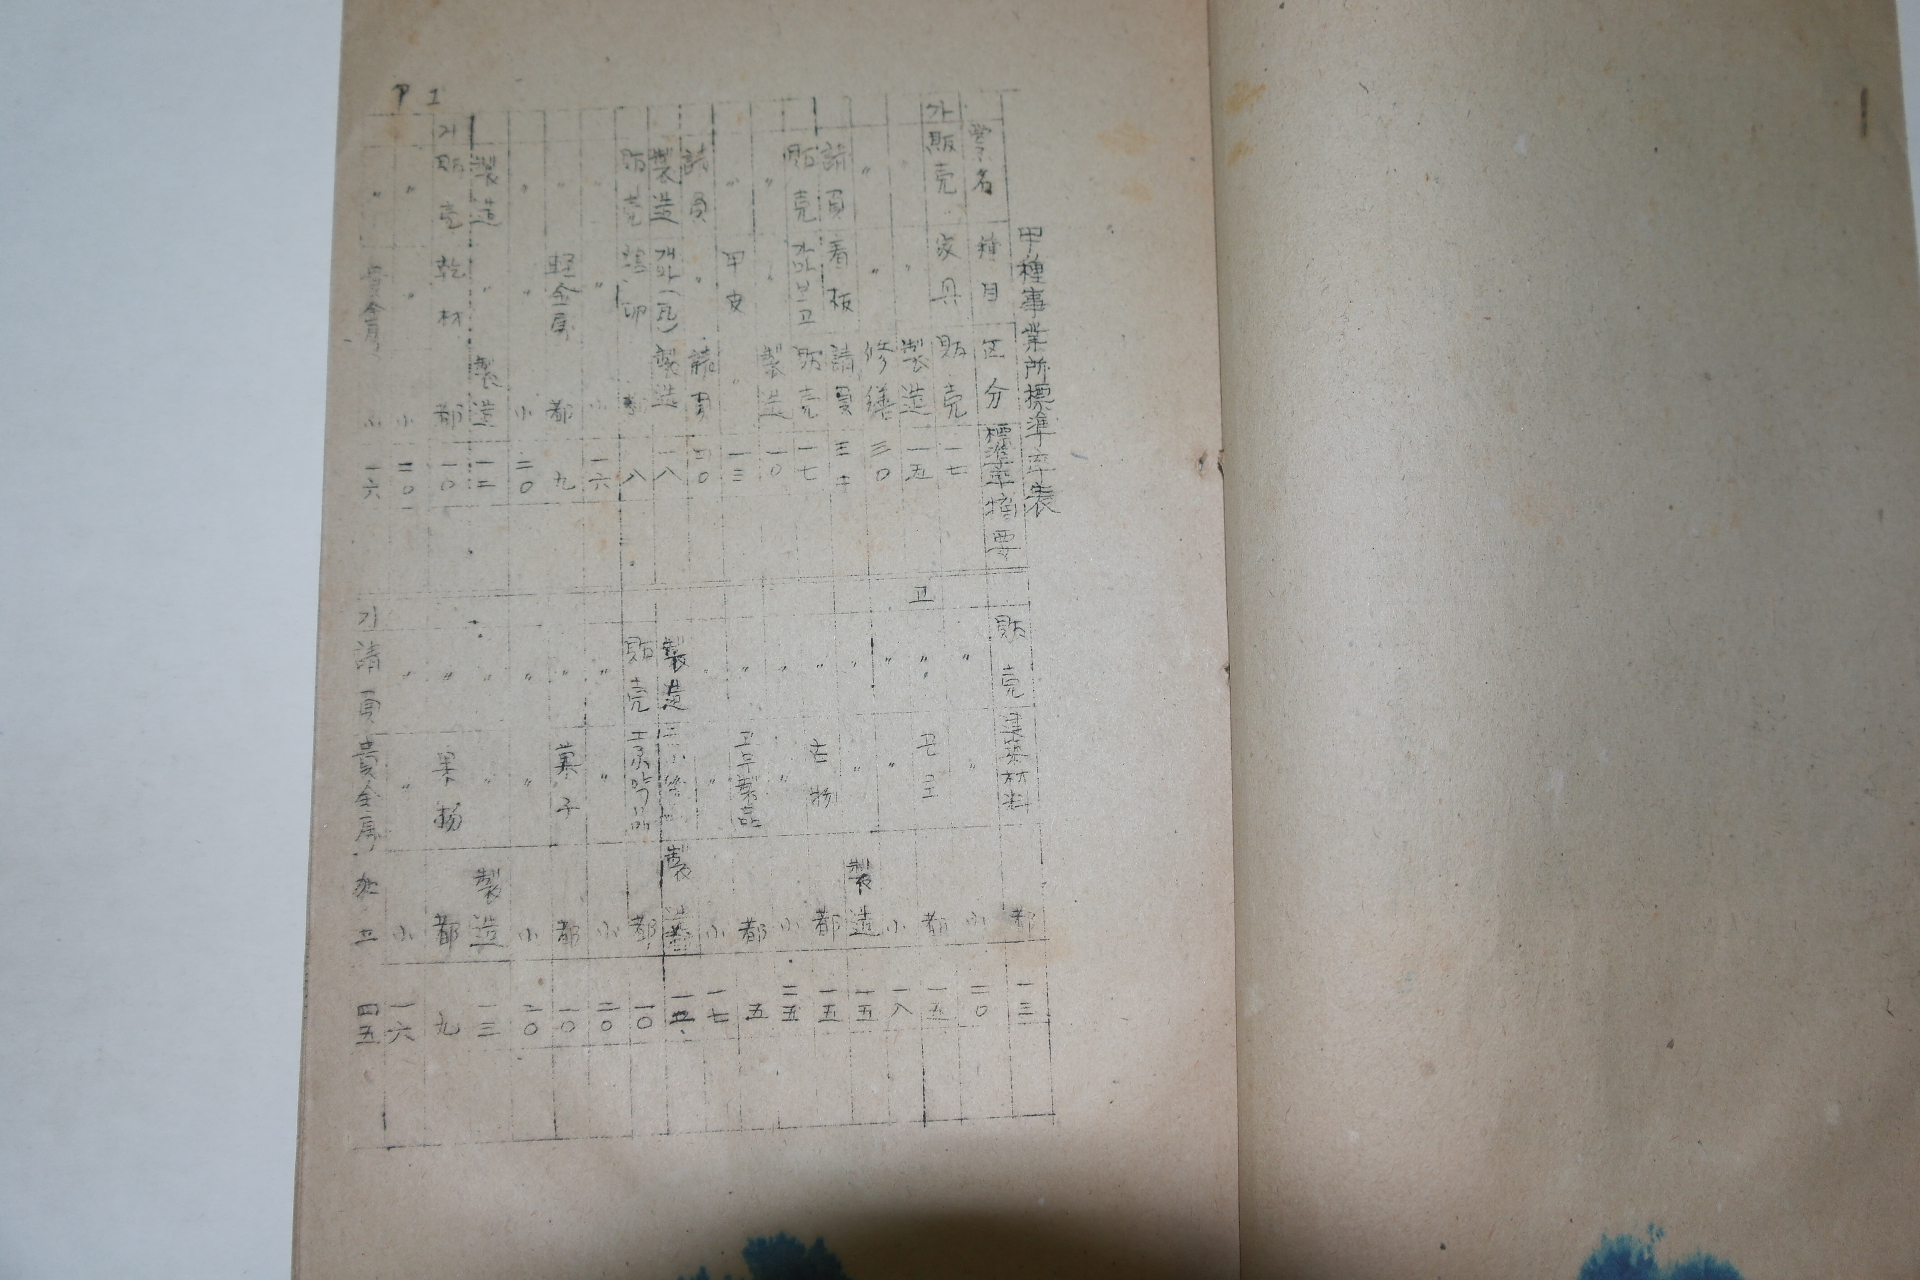 甲種事業所標準率表
業名 種目 区分 標準率 摘要
가 販売 家具 販売 一七
〃 〃 製造 一五
〃 〃 修繕 三〇
請負 看板 請負
販売 가마보고 販売 一七
〃 〃 製造 一〇
〃 甲皮 〃 一三
請負 〃 請負 二〇
製造 개와(瓦) 製造 一八
販売 鶏卵 都 八
〃 〃 小 一六
〃 軽金属 都 九
〃 〃 小 二〇
製造 〃 製造 一二
거 販売 乾材 都 一〇
〃 〃 小 二〇
〃 貴金属 小 一六
販売 建築材料 都 一三
〃 〃 小 二〇
고 〃 都 一五
〃 〃 小 一八
〃 〃 製造 一五
〃 古物 都 一五
〃 〃 小 二五
〃 고무製品 都 五
〃 〃 小 一七
製造 製造
販売 都 一〇
〃 〃 小 二〇
〃 菓子 都 一〇
〃 〃 小 二〇
〃 〃 製造 一三
〃 果物 都 九
〃 〃 小 一六
기 請負 貴金属 加工 四五
P 1